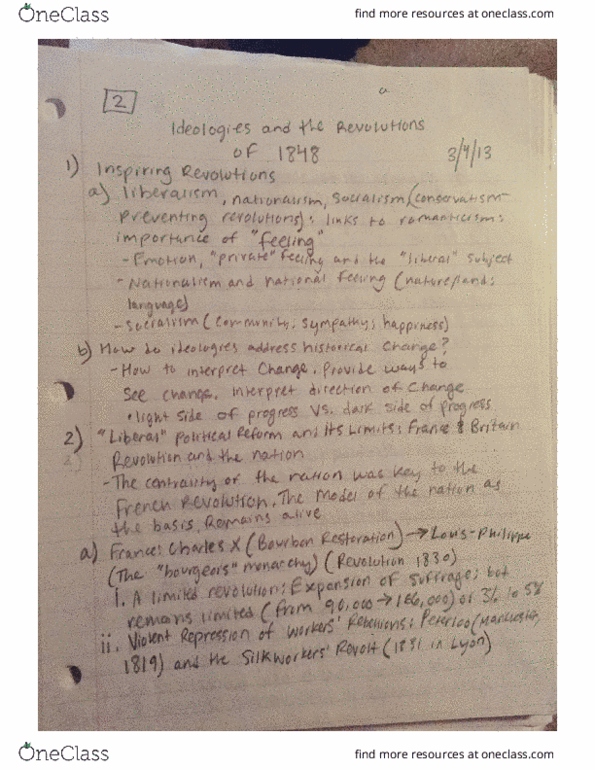 OneClass
find more resources at oneclass.com
2
Ideologies and the Revolutions
OF 1848
3/4/13
1) Inspiring Revolutions
a) liberalism, nationalism, socialism (conservatism-
preventing revolutions): links to romanticism:
importance of "feeling"
- Emotion, "private" feeling and the "liberal" subject
- Nationalism and national feeling (nature/land;
language)
- Socialism (community; sympathy; happiness)
b) How do ideologies address historical change?
- How to interpret change. Provide ways to
see change. Interpret direction of change
• light side of progress vs. dark side of progress
2) "Liberal" Political Reform and its Limits: France & Britain
Revolution and the nation
- The centrality of the nation was key to the
French Revolution. The model of the nation as
the basis remains alive
a) France: Charles X (Bourbon Restoration) → Louis-Philippe
(The "bourgeois" monarchy) (Revolution 1830)
i. A limited revolution: Expansion of suffrage; but
remains limited (from 90,000 → 166,000) or 3% to 5%
ii. Violent Repression of workers' Rebellions: Peterloo (Manchester,
1819) and the Silkworkers' Revolt (1831 in Lyon)
OneClass
find more resources at oneclass.com